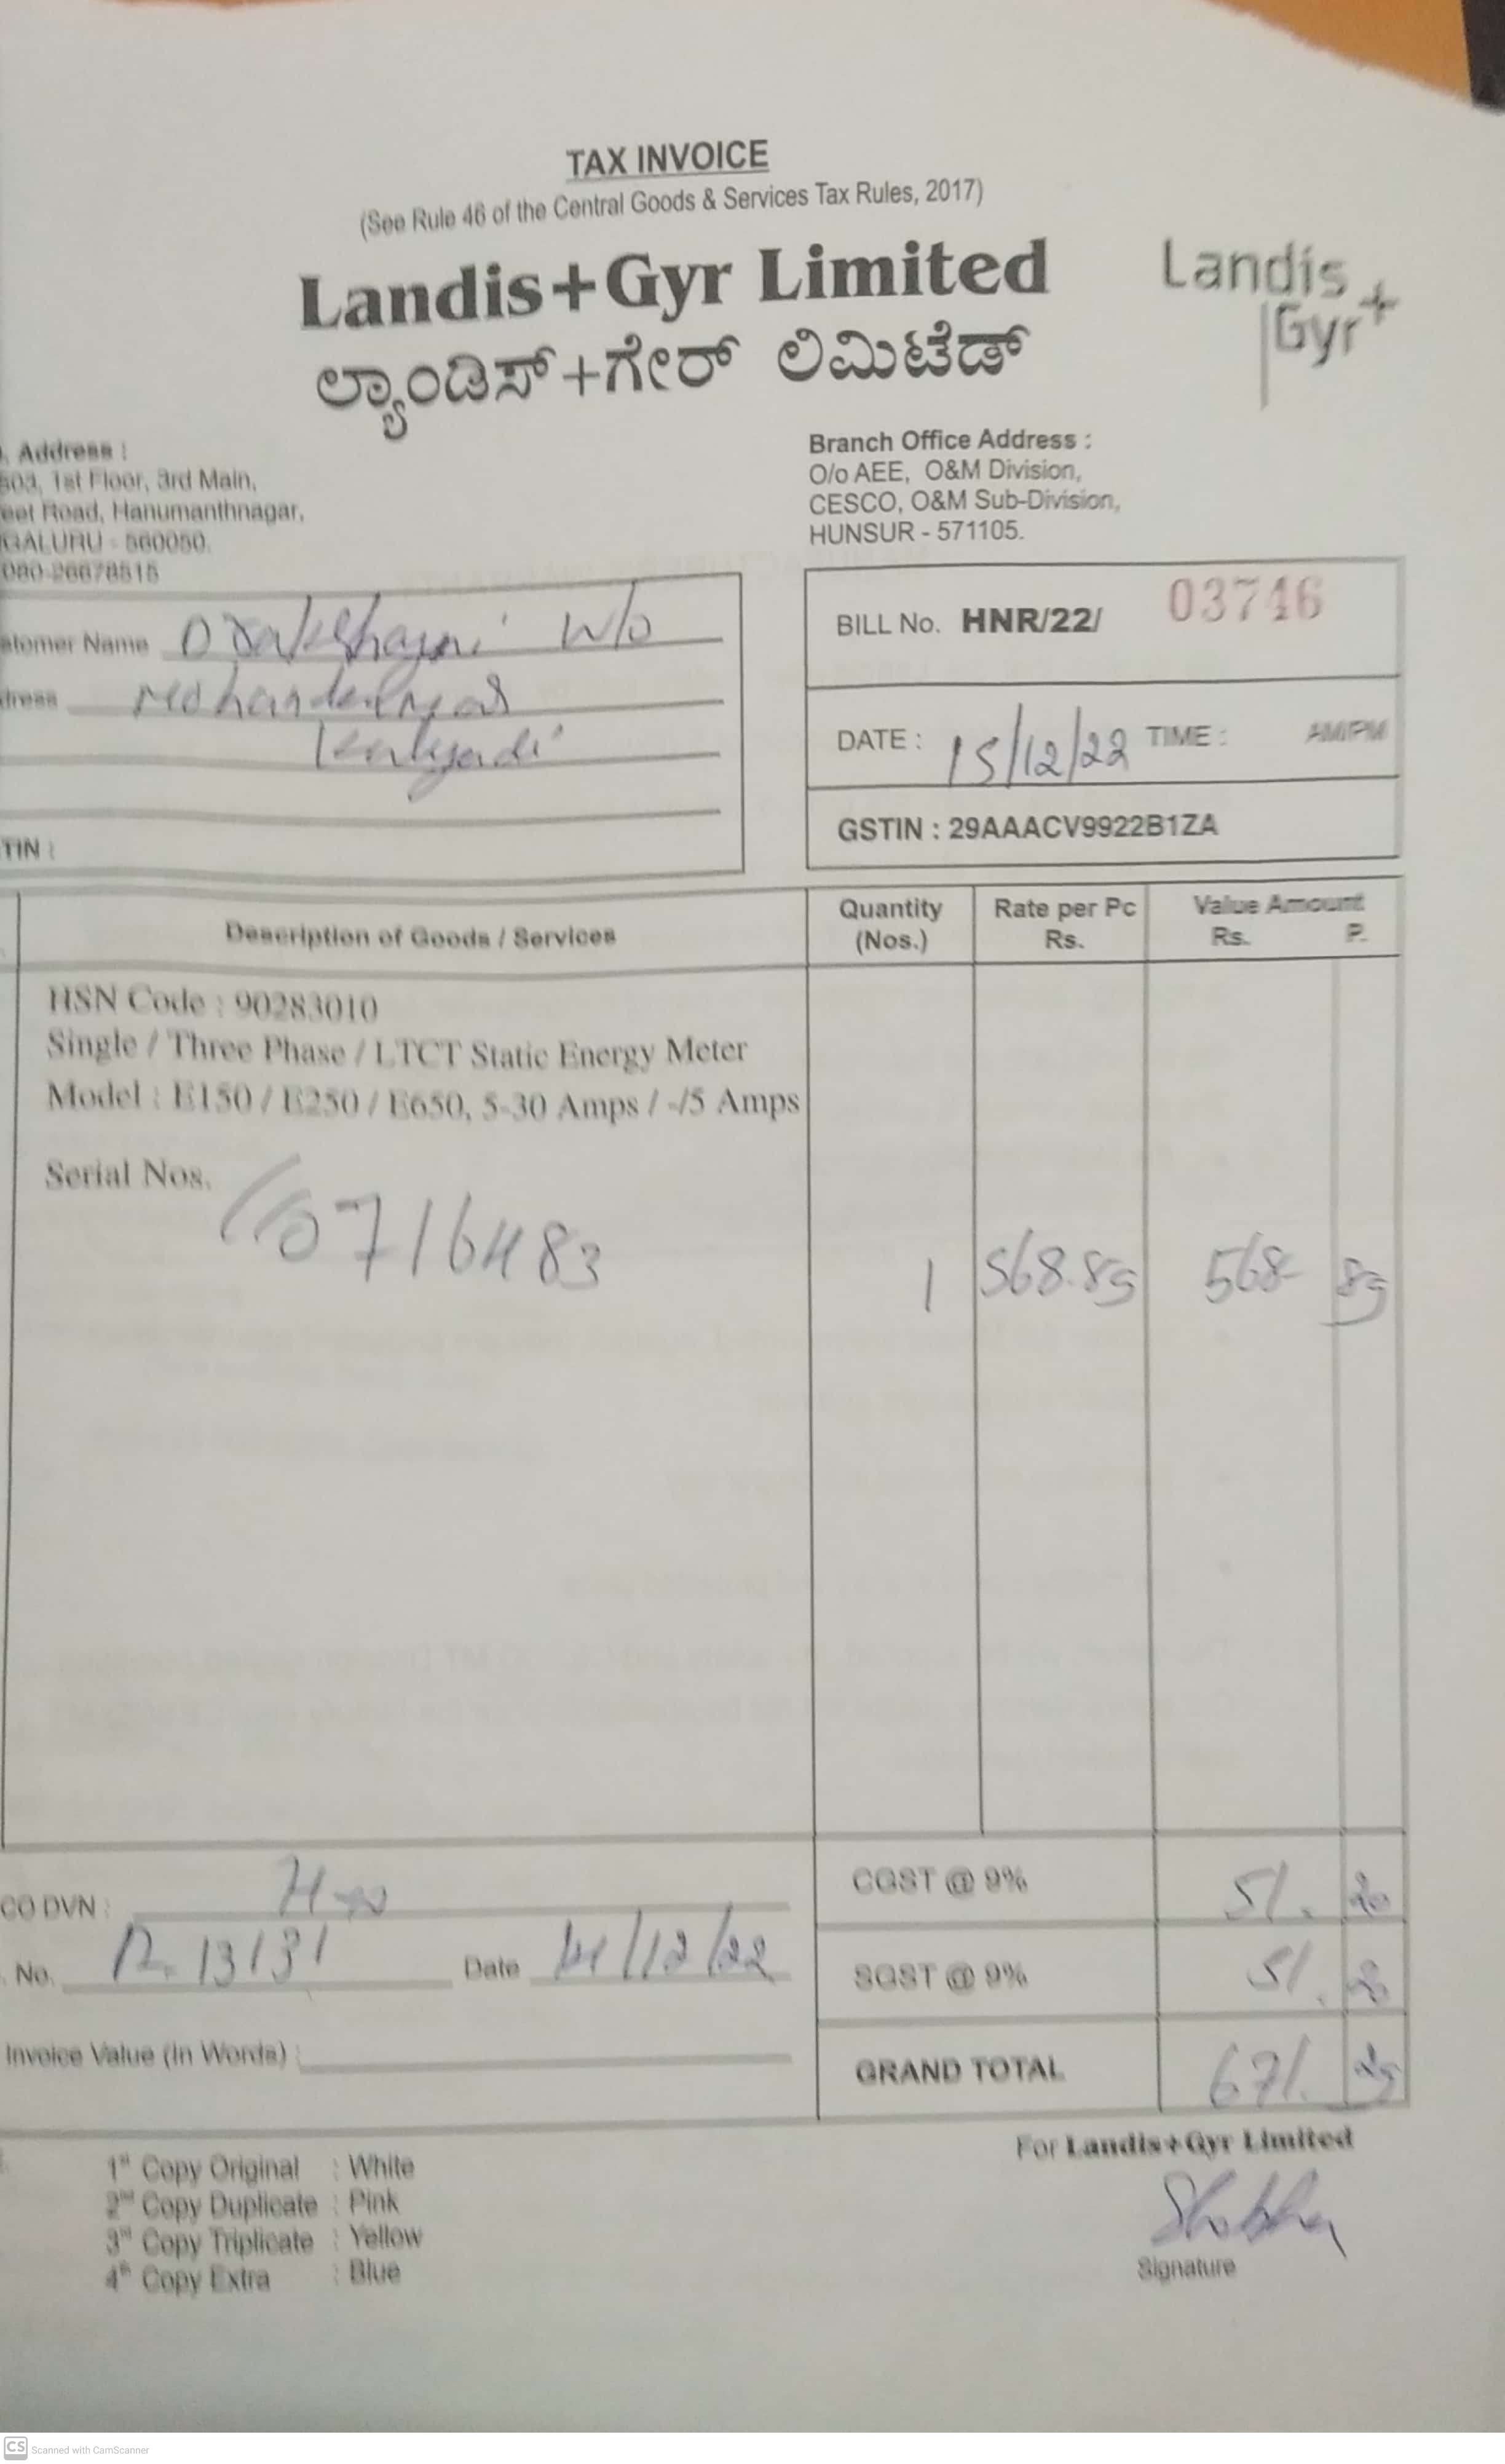 TAX INVOICE
(See Rule 46 of the Central Goods & Services Tax Rules, 2017)
Landis+Gyr Limited
ಲ್ಯಾಂಡಿಸ್+ಗೇರ್ ಲಿಮಿಟೆಡ್
Landis
Gyr+
. Address :
503, 1st Floor, 3rd Main,
eet Road, Hanumanthnagar,
GALURU - 560050.
080-26678515
Branch Office Address :
O/o AEE, O&M Division,
CESCO, O&M Sub-Division,
HUNSUR - 571105.
stomer Name W/o
dress
TIN :
BILL No. HNR/22/ 03746
DATE : 15/12/22 TIME : AM/PM
GSTIN : 29AAACV9922B1ZA
Description of Goods / Services
Quantity
(Nos.)
Rate per Pc
Rs.
Value Amount
Rs. P.
HSN Code : 90283010
Single / Three Phase / LTCT Static Energy Meter
Model : E150 / E250 / E650, 5-30 Amps / -/5 Amps
Serial Nos.
1 568.85 568 85
CO DVN :
No. 13131 Date 14/12/22
Invoice Value (In Words) :
CGST @ 9% 51. 20
SGST @ 9% 51. 20
GRAND TOTAL 671. 25
1st Copy Original : White
2nd Copy Duplicate : Pink
3rd Copy Triplicate : Yellow
4th Copy Extra : Blue
For Landis+Gyr Limited
Shobha
Signature
CS Scanned with CamScanner